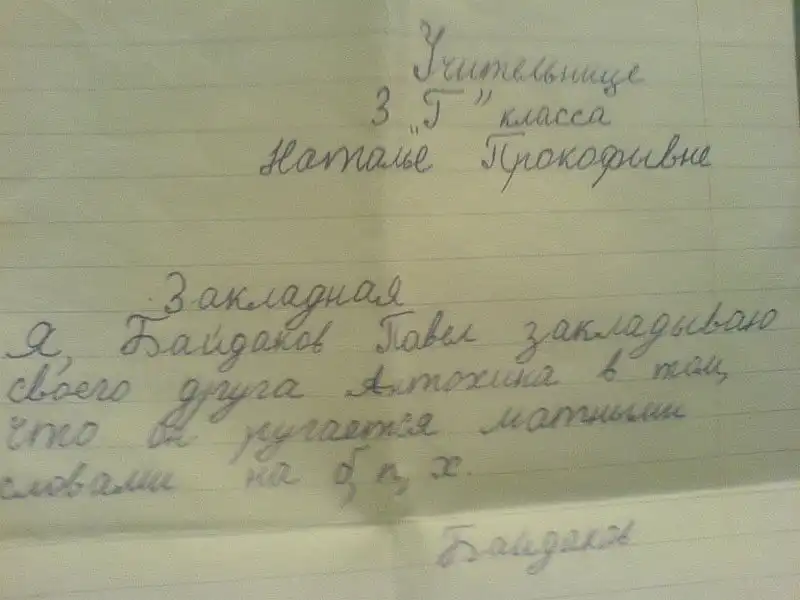 Учительнице
3 „Г" класса
Наталье Прокофывне
Закладная
Я, Байдаков Павел закладываю
своего друга Антохина в том,
что он ругается матными
словами на б, п, х.
Байдаков